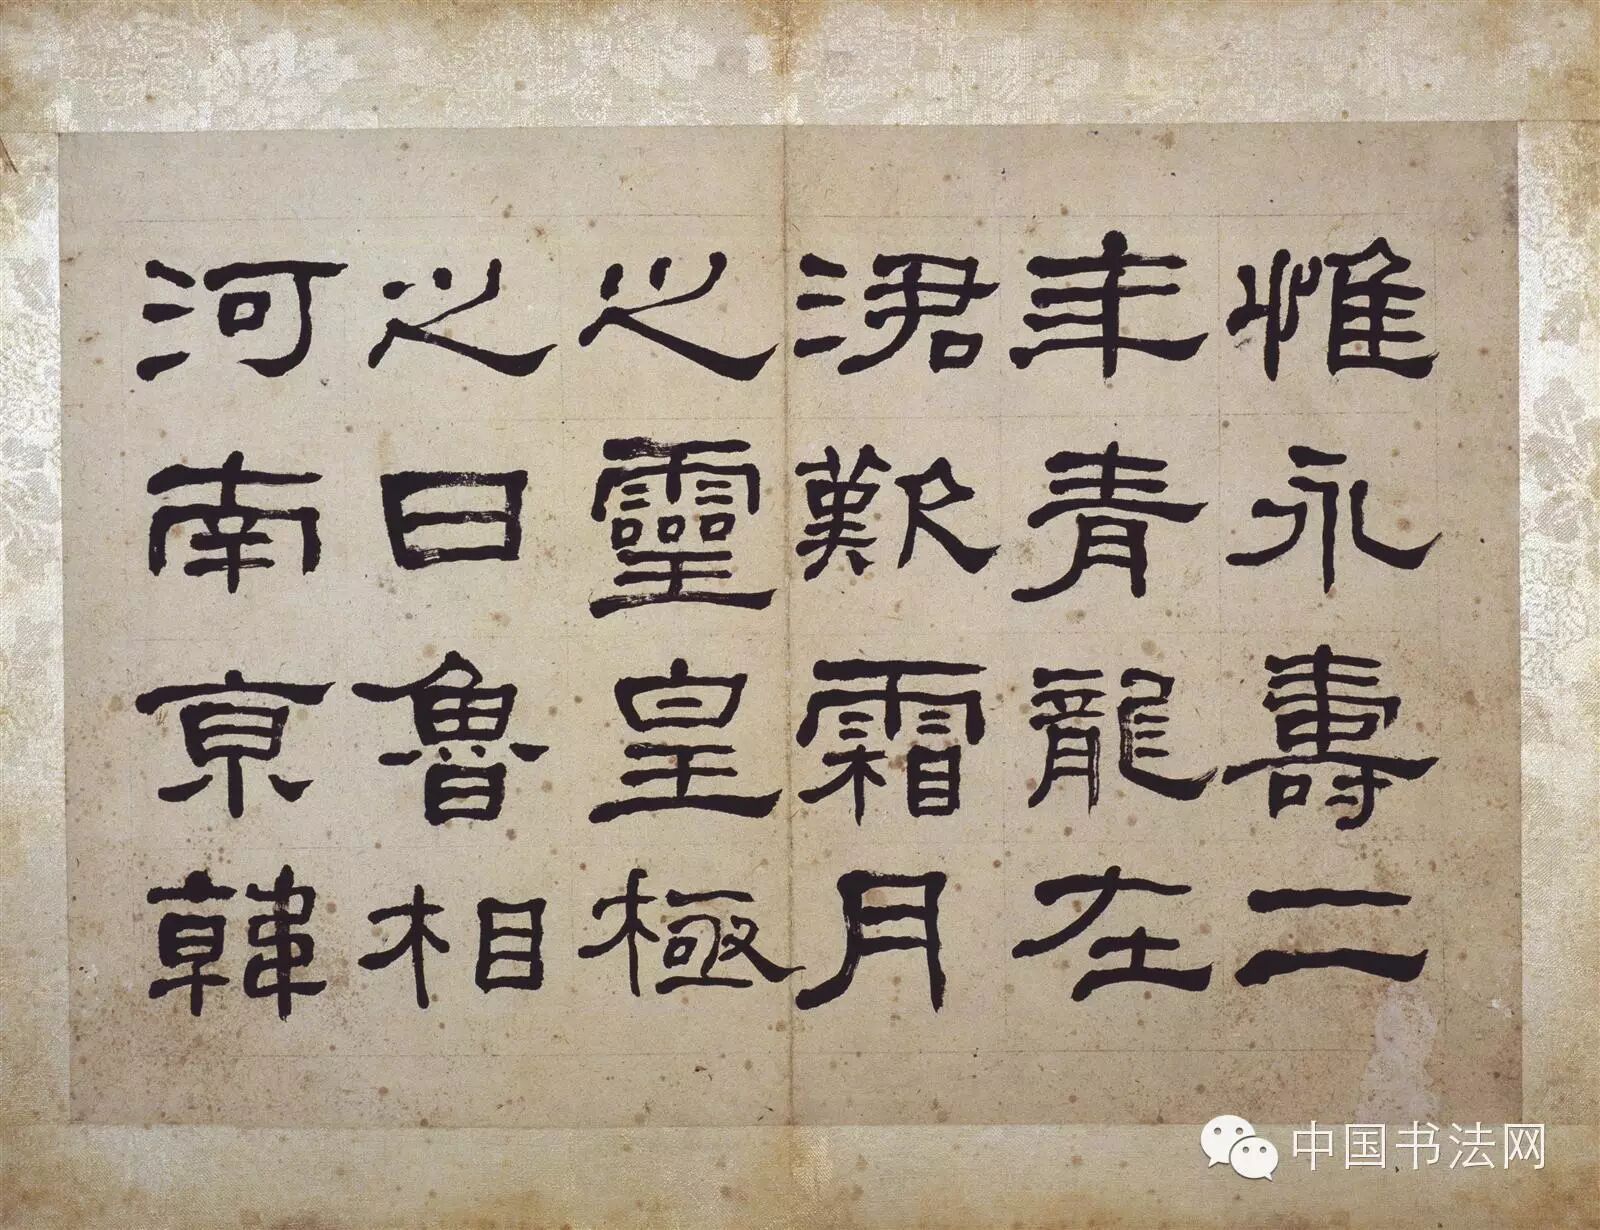 惟永壽二
年青龍在
涒歎霜月
之靈皇極
之日魯相
河南京韓
中国书法网